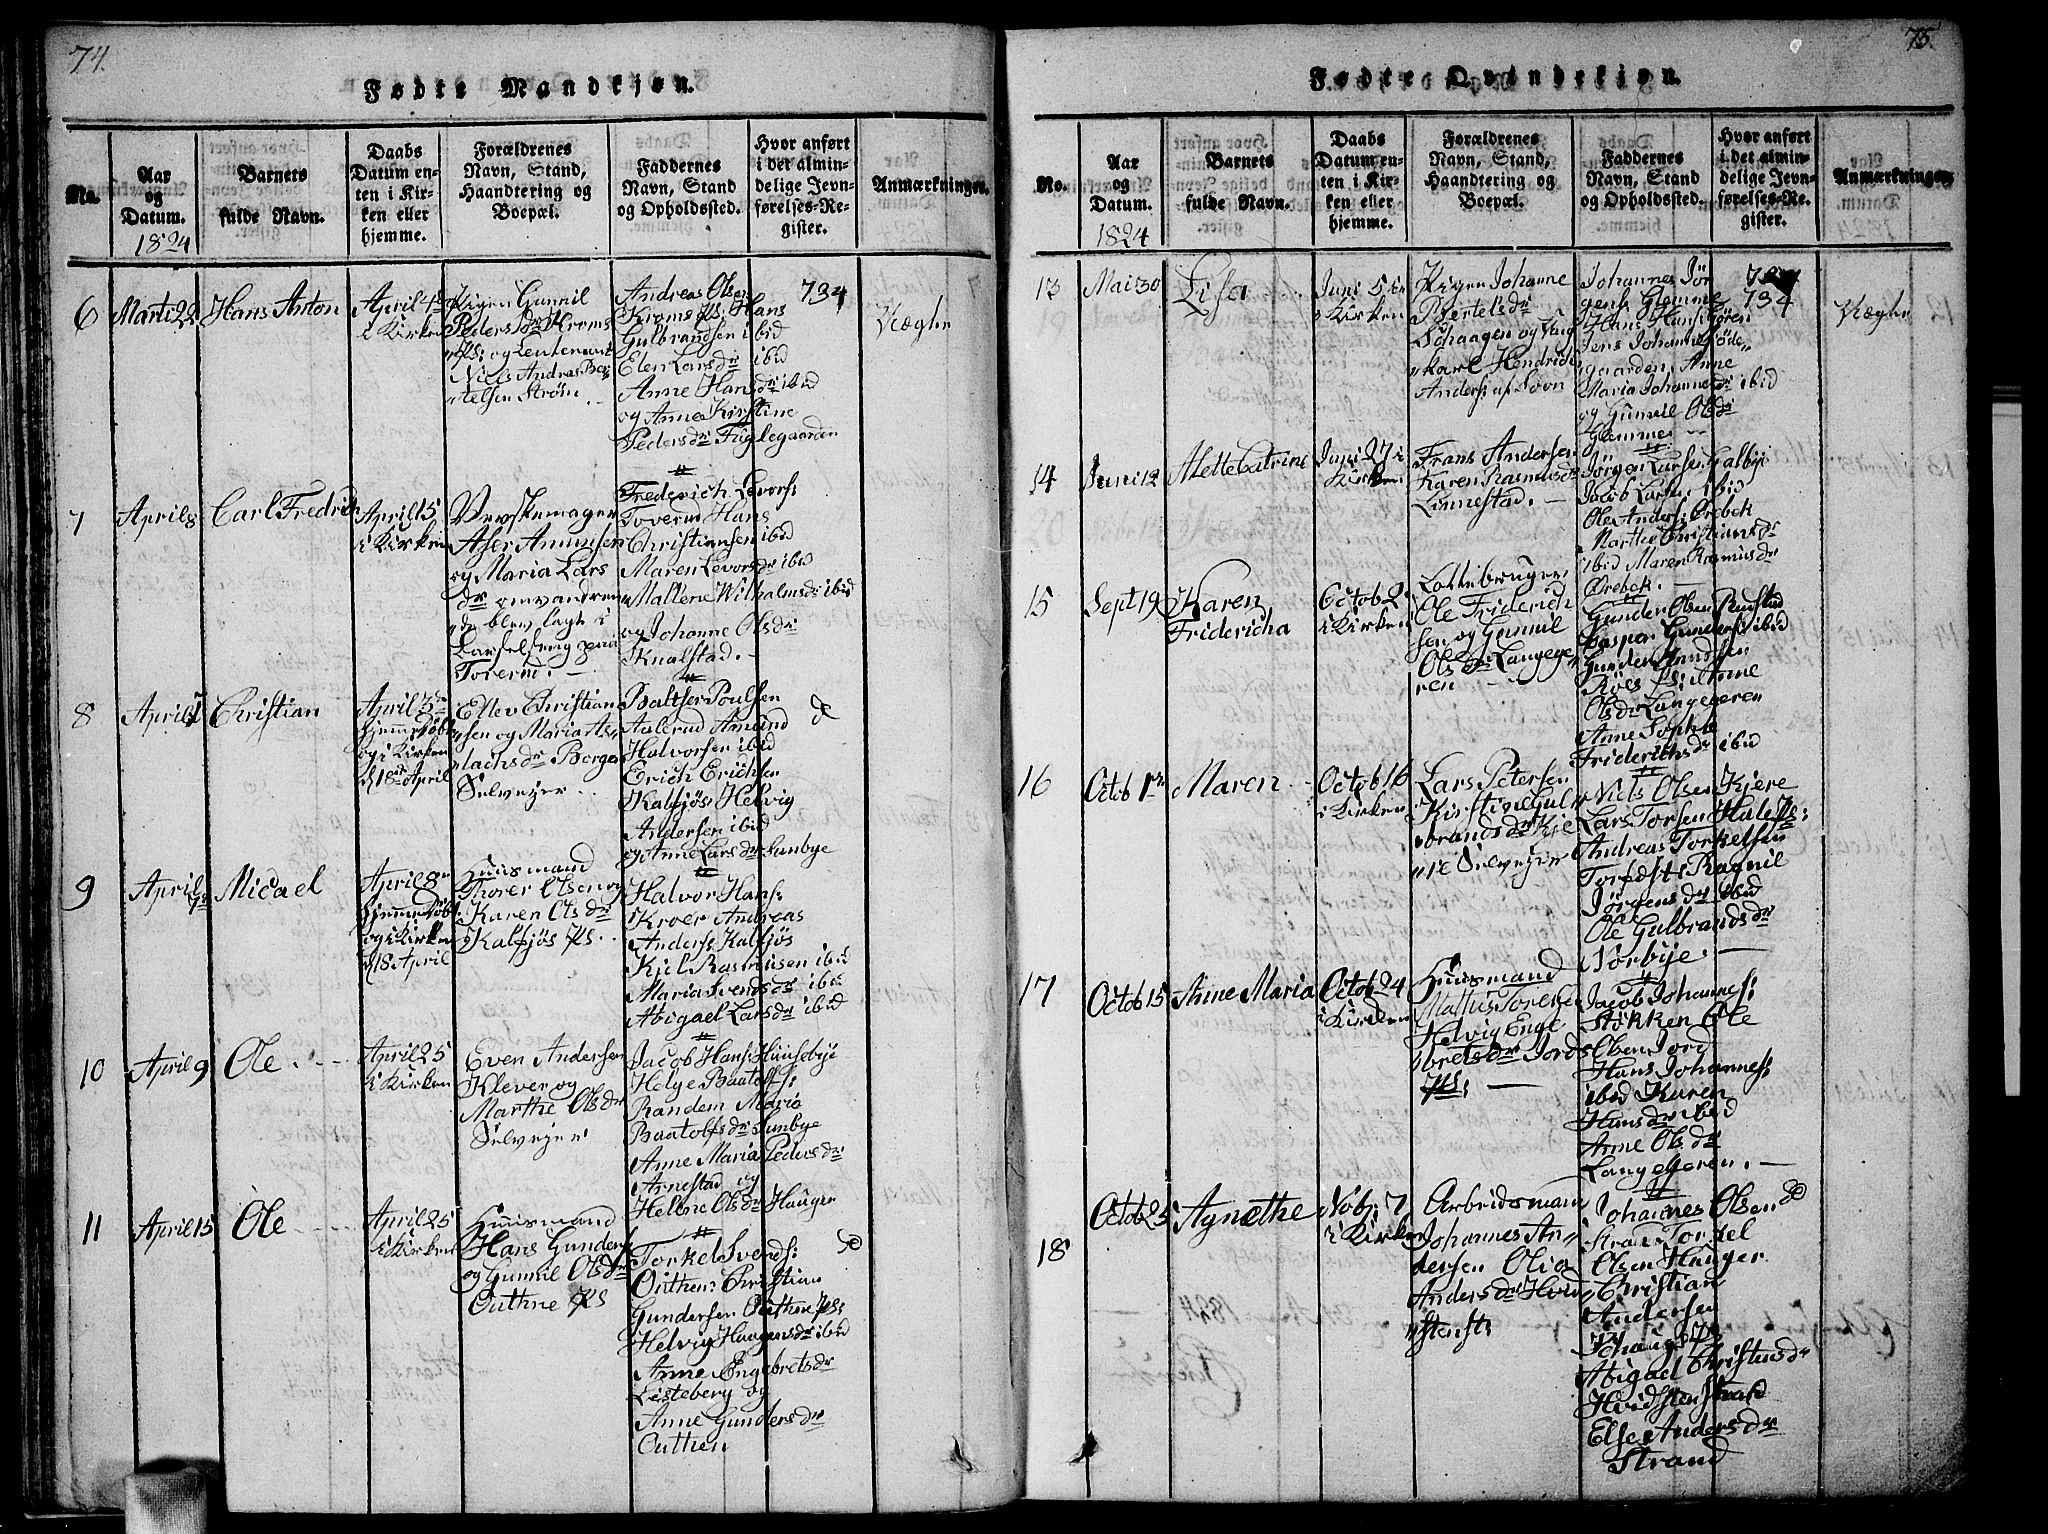 74.
Fødte Mandkjøn.
No.
Aar og Datum. 1824
Barnets fulde Navn.
Daabs Datum enten i Kirken eller hjemme.
Forældrenes Navn, Stand, Haandtering og Boepæl.
Faddernes Navn, Stand og Opholdssted.
Hvor anført i det almindelige Jevnførelses-Register.
Anmærkninger.
6
Marti 22
Hans Anton
April 4de
i Kirken
Pigen Gunnil
Peders dr Kroms
Ps: og Leutenant
Niels Andreas Ber
telsen Strøm
Andreas Olsen
Kroms Ps: Hans
Gulbrandsen ibid
Elen Lars dr ibid
Anne Hans dr ibid
og Anne Kirstine
Peders dr Fuglegaarden
734
Uægte
7
April 8
Carl Fredrich
April 15
i Kirken
Aser Amunsen
og Maria Lars
dr omvandren
de blev lagt i
Barselseng paa
Toverud. –
Frederich Levors:
Toverud Hans
Christiansen ibid
Maren Levors dr ibid
Mallene Wilhalms dr ibid
og Johanne Ols dr
Knalstad. –
8
April 1
Christian
April 3de
hjemme døbt
og i Kirken
d 18de April
Ellev Christian
sen og Maria As
lachs dr Borger
Selvejer
Baltser Poulsen
Aulerud Amund
Halvorsen ibid
Erich Erichsen
Kalsjøs Helvig
Andersen ibid
og Anne Lars dr Sunbye
do
9
April 7de
Micael
April 8de
hjemme døbt
og i Kirken
d 18 April
Huusmand
Thorer Olsen og
Karen Ols dr
Kalsjøs Ps.
Halvor Hans:
Kroer Andreas
Anders: Kalsjøs
Kjel Rasmusen ibid
Maria Svends dr ibid
Abigael Lars dr ibid
10
April 9
Ole
April 25
i Kirken
Even Andersen
Klever og
Marthe Ols dr
Selvejer
Jacob Hans: Huusebye
Helge Baatolfs:
Randem Maria
Baatolfs dr Sunbye
Anne Maria Peders dr
Arnestad og
Helene Ols dr Hauger
11
April 15
Ole
April 25
i Kirken
Huusmand
Hans Gunders:
og Gunnil Ols dr
Outhne Ps
Torkel Svends:
Outhen: Christian
Gundersen Outhne Ps:
Helvig Haagens dr ibid
Anne Engebrets dr
Listeberg og
Anne Gunders dr
Outhen
do
75.
Fødte Qvindekjøn.
No.
Aar og Datum. 1824
Barnets fulde Navn.
Daabs Datum enten i Kirken eller hjemme.
Forældrenes Navn, Stand, Haandtering og Boepæl.
Faddernes Navn, Stand og Opholdssted.
Hvor anført i det almindelige Jevnførelses-Register.
Anmærkninger.
13
Mai 30
Lisa
Juni 5te
i Kirken
Pigen Johanne
Biertels dr
Schaagen og Ung
karl Hendrich
Anders: af Sovn
Johannes Jør
gens: Glemme
Hans Hans: Gören
Jens Johannes: Øde
gaarden, Anne
Maria Johannes dr ibid
og Gunnil Ols dr
Glemme
734
Uægte
14
Juni 12
Alette Catrine
Juni 27 i
Kirken
Frans Andersen
Karen Rasmus dr
Linnestad. –
Jörgen Larsen Galbye
Jacob Larsen ibid
Ole Anders: Ørebek
Marthe Christians dr
ibid Maren Rasmus dr
Ørebek. –
15
Sept 19
Karen
Fridericha
Octob 2
i Kirken
Lottebruger
Ole Friderich
sen og Gunnil
Ols dr Langege
ren
Gunder Olsen Rustad
Casper Gunders: ibid
Gunder Amdsen
Röes Ps: Anne
Ols dr Langegeren
Anne Sophie
Friderichs dr ibid
16
Octob 1ste
Maren
Octob 16
i Kirken
Lars Petersen
Kirstine Gul
brands dr Kje
re Selvejer
Niels Olsen Kjere
Lars Torsen Hule Ps:
Andreas Torkelsen
Torfdst: Ragnil
Jörgens dr ibid
Ole Gulbrands dr
Norbye. –
17
Octob 15
Anne Maria
Octob 24
i Kirken
Huusmand
Mattis Toresen
Helvig Enge
brets dr Jords
Ps: –
Jacob Johannes:
Støkken Ole
Olsen Jord
Hans Johannes:
ibid Karen
Hans dr ibid
Anne Ols dr
Langegeren. –
18
Octob 25
Agnethe
Nobr: 7
i Kirken
Arbeidsmand
Johannes An
dersen Olia
Anders dr Hvid
stenst:
Johannes Olsen
Strand Torkel
Olsen Hauger
Christian
Andersen
Abigael Christens dr
Hvidsten Strand
Else Anders dr
Strand
do